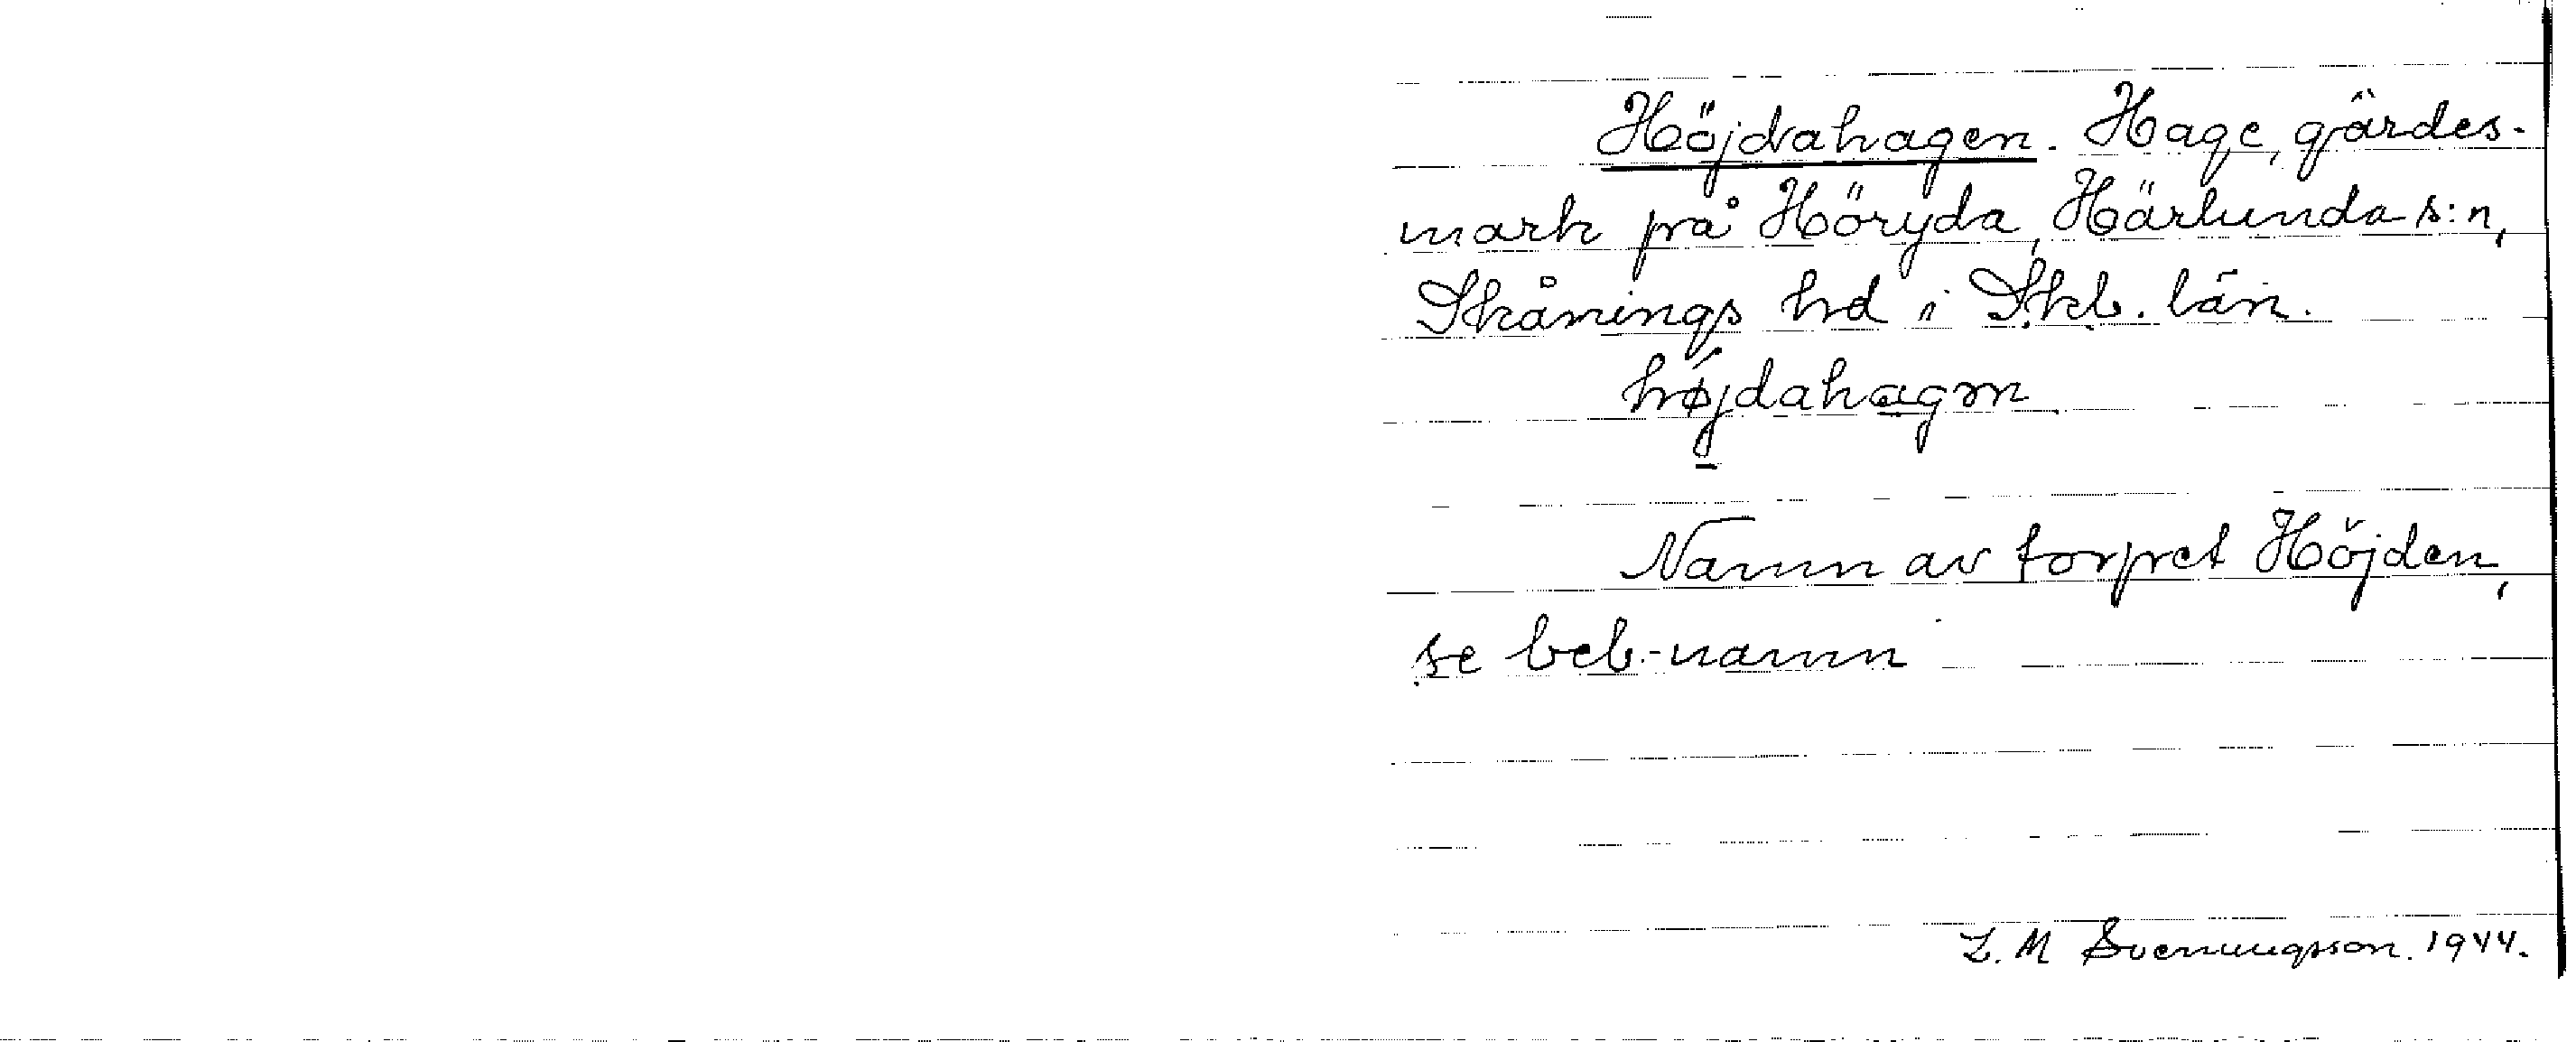 Höjdahagen. Hage, gärdes-
mark på Höryda, Härlunda s:n,
Skånings hd i Skb. län.
højdahagen
Namn av torpet Höjden,
se beb.-namn
L. M Svenungsson. 1944.